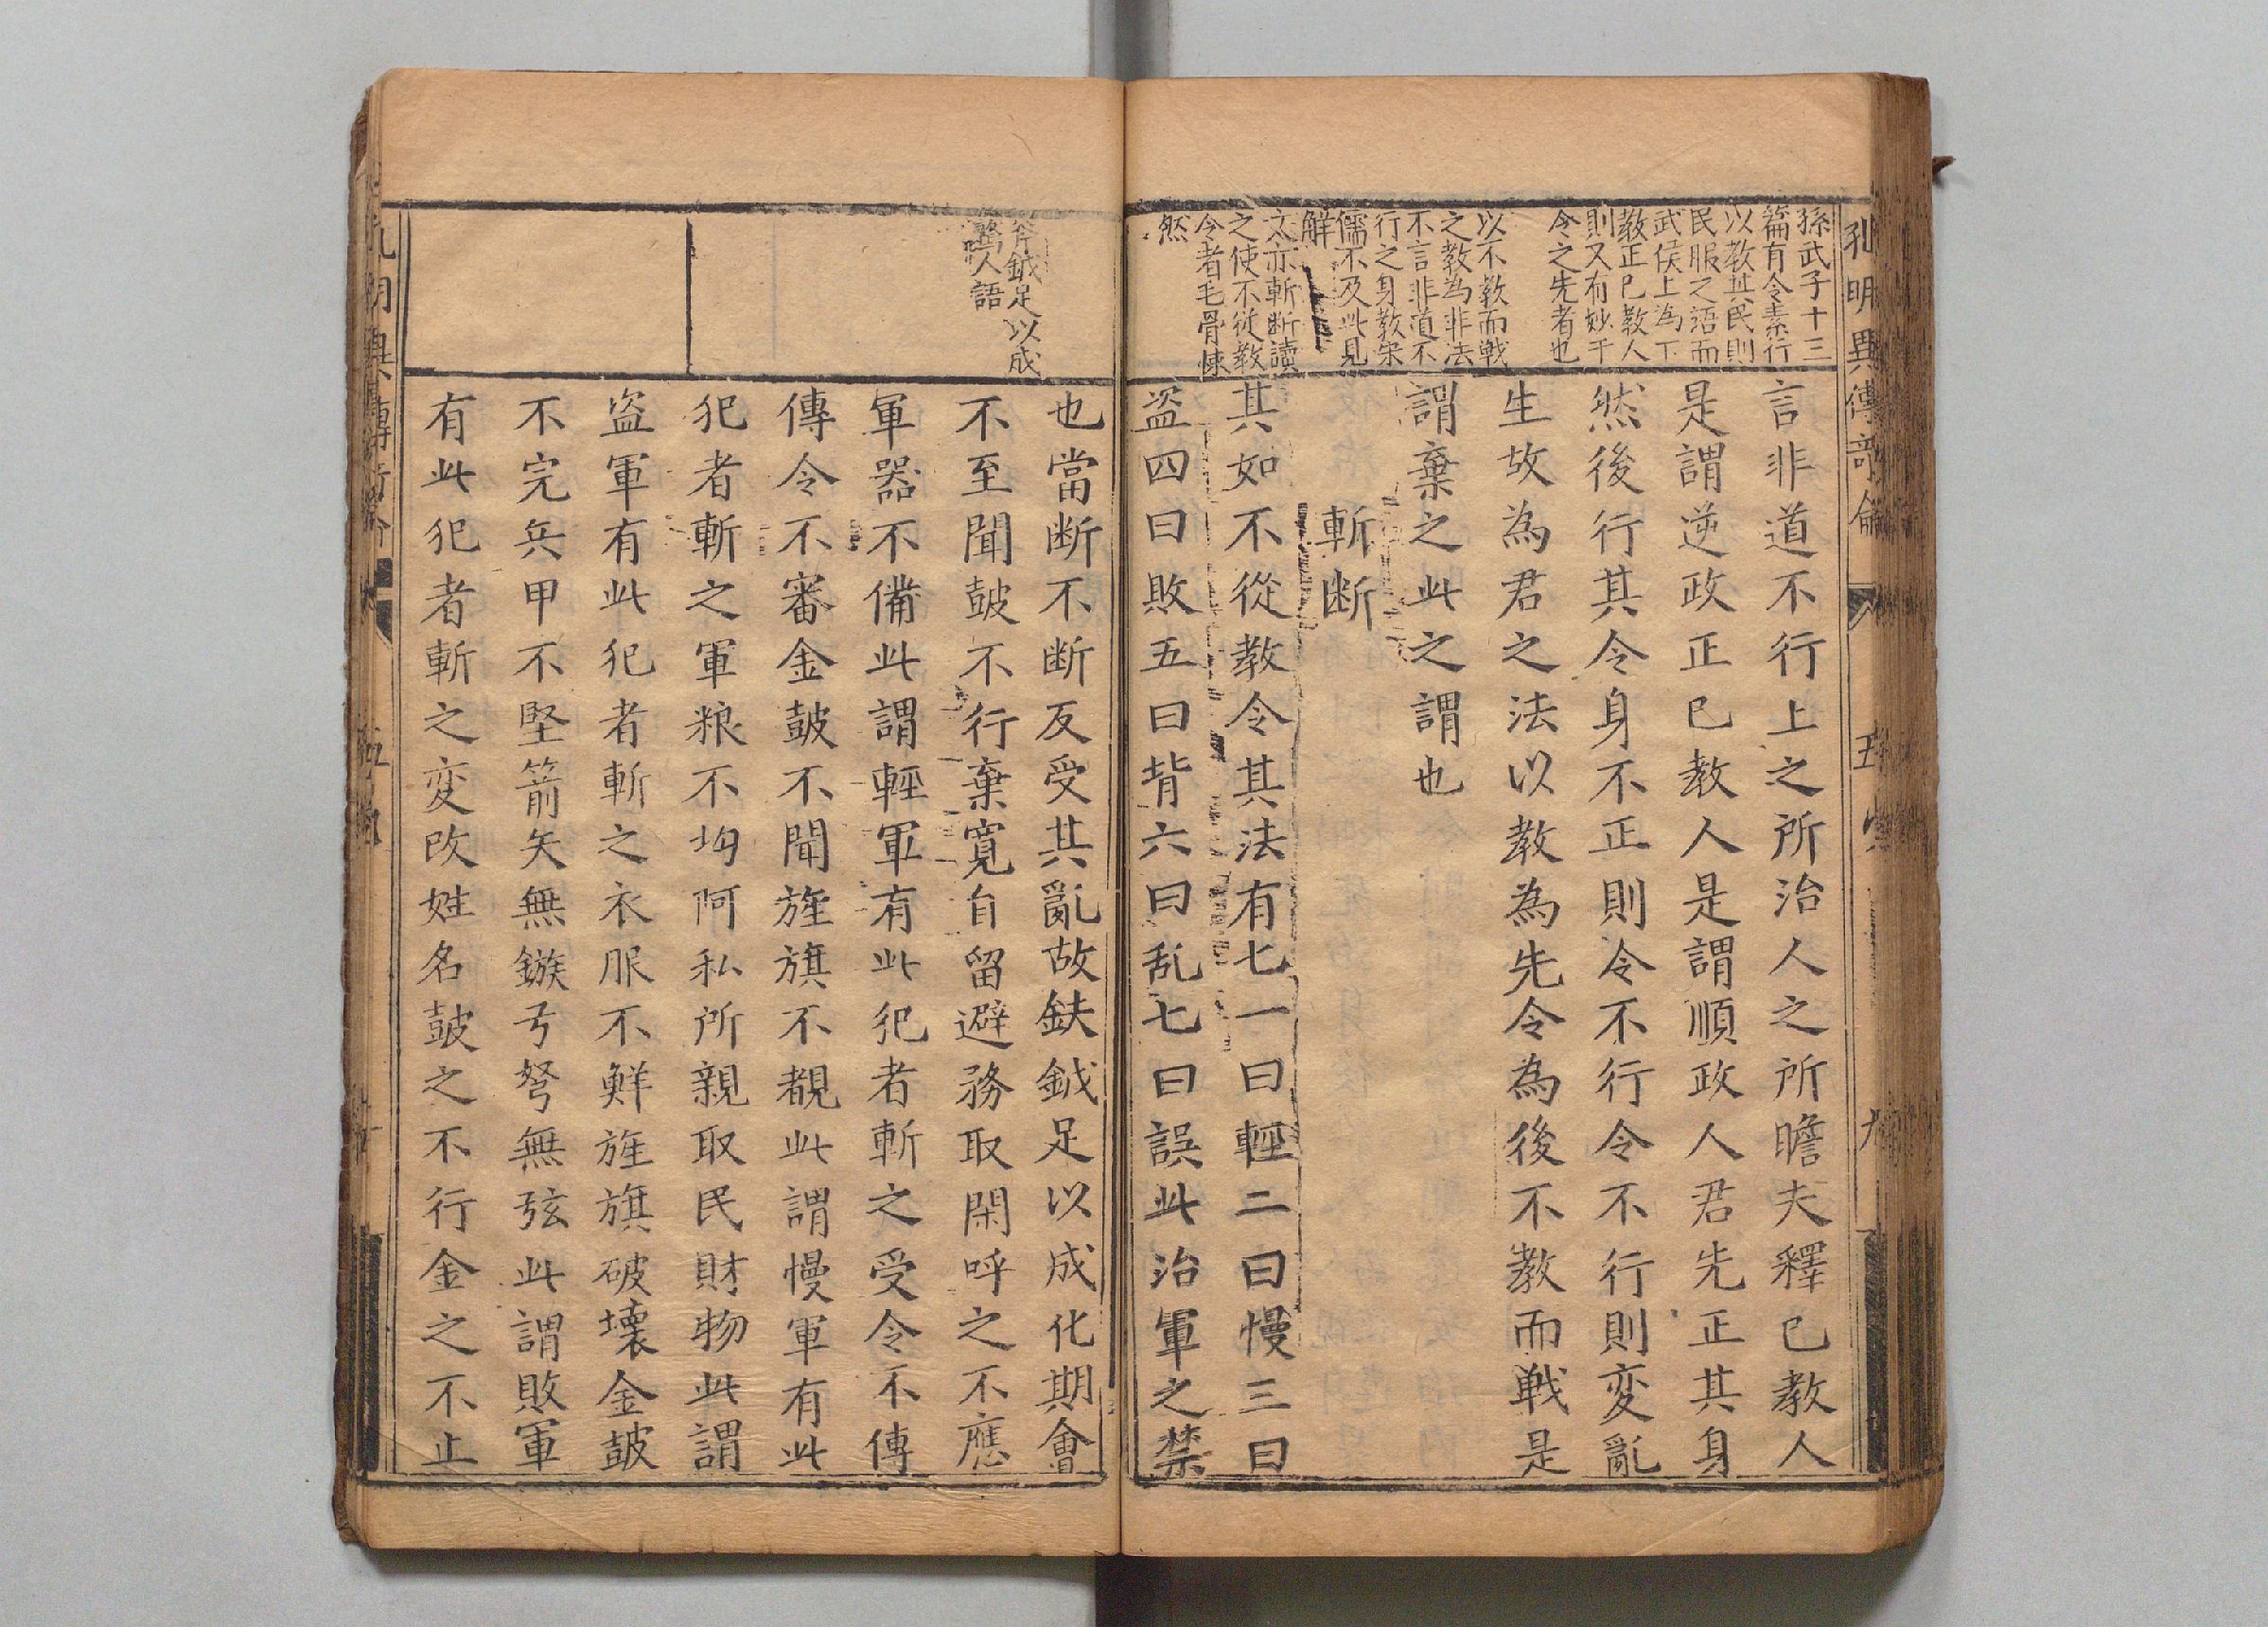 孔明異傳奇
孫武子十三
篇有令素行
以教其民則
民服之語而
武侯上為下
教正已教人
則又有妙于
令之先者也
以不教而戰
之教為非法
不言非道不
行之身教宋
儒不及此見
解
文亦斬断讀
之使不従教
令者毛骨悚
然
言非道不行上之所治人之所瞻夫釋已教人
是謂逆政正已教人是謂順政人君先正其身
然後行其令身不正則令不行令不行則変亂
生故為君之法以教為先令為後不教而戦是
謂棄之此之謂也
斬断
其如不從教令其法有七一曰輕二曰慢三曰
盗四曰敗五曰背六曰乱七曰誤此治軍之禁
斧鉞足以成
驚人語
也當断不断反受其亂故鈇鉞足以成化期會
不至聞皷不行棄寛自留避務取閑呼之不應
軍器不備此謂輕軍有此犯者斬之受令不傳
傳令不審金皷不聞旌旗不覩此謂慢軍有此
犯者斬之軍粮不均阿私所親取民財物此謂
盗軍有此犯者斬之衣服不鮮旌旗破壞金皷
不完兵甲不堅箭矢無鏃弓弩無弦此謂敗軍
有此犯者斬之変改姓名皷之不行金之不止